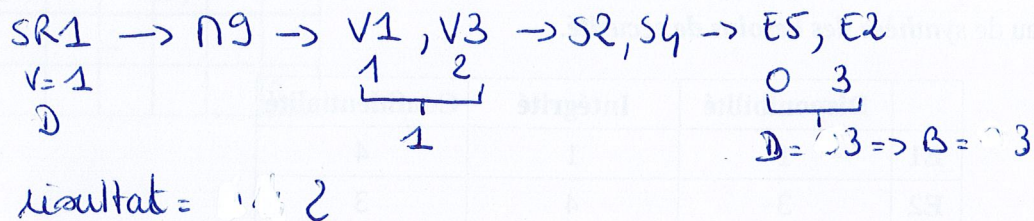 SR1 → M9 → V1, V3 → S2, S4 → E5, E2
V=1 1 2 0 3
D 1 D= 3 => B= 3
résultat = 2